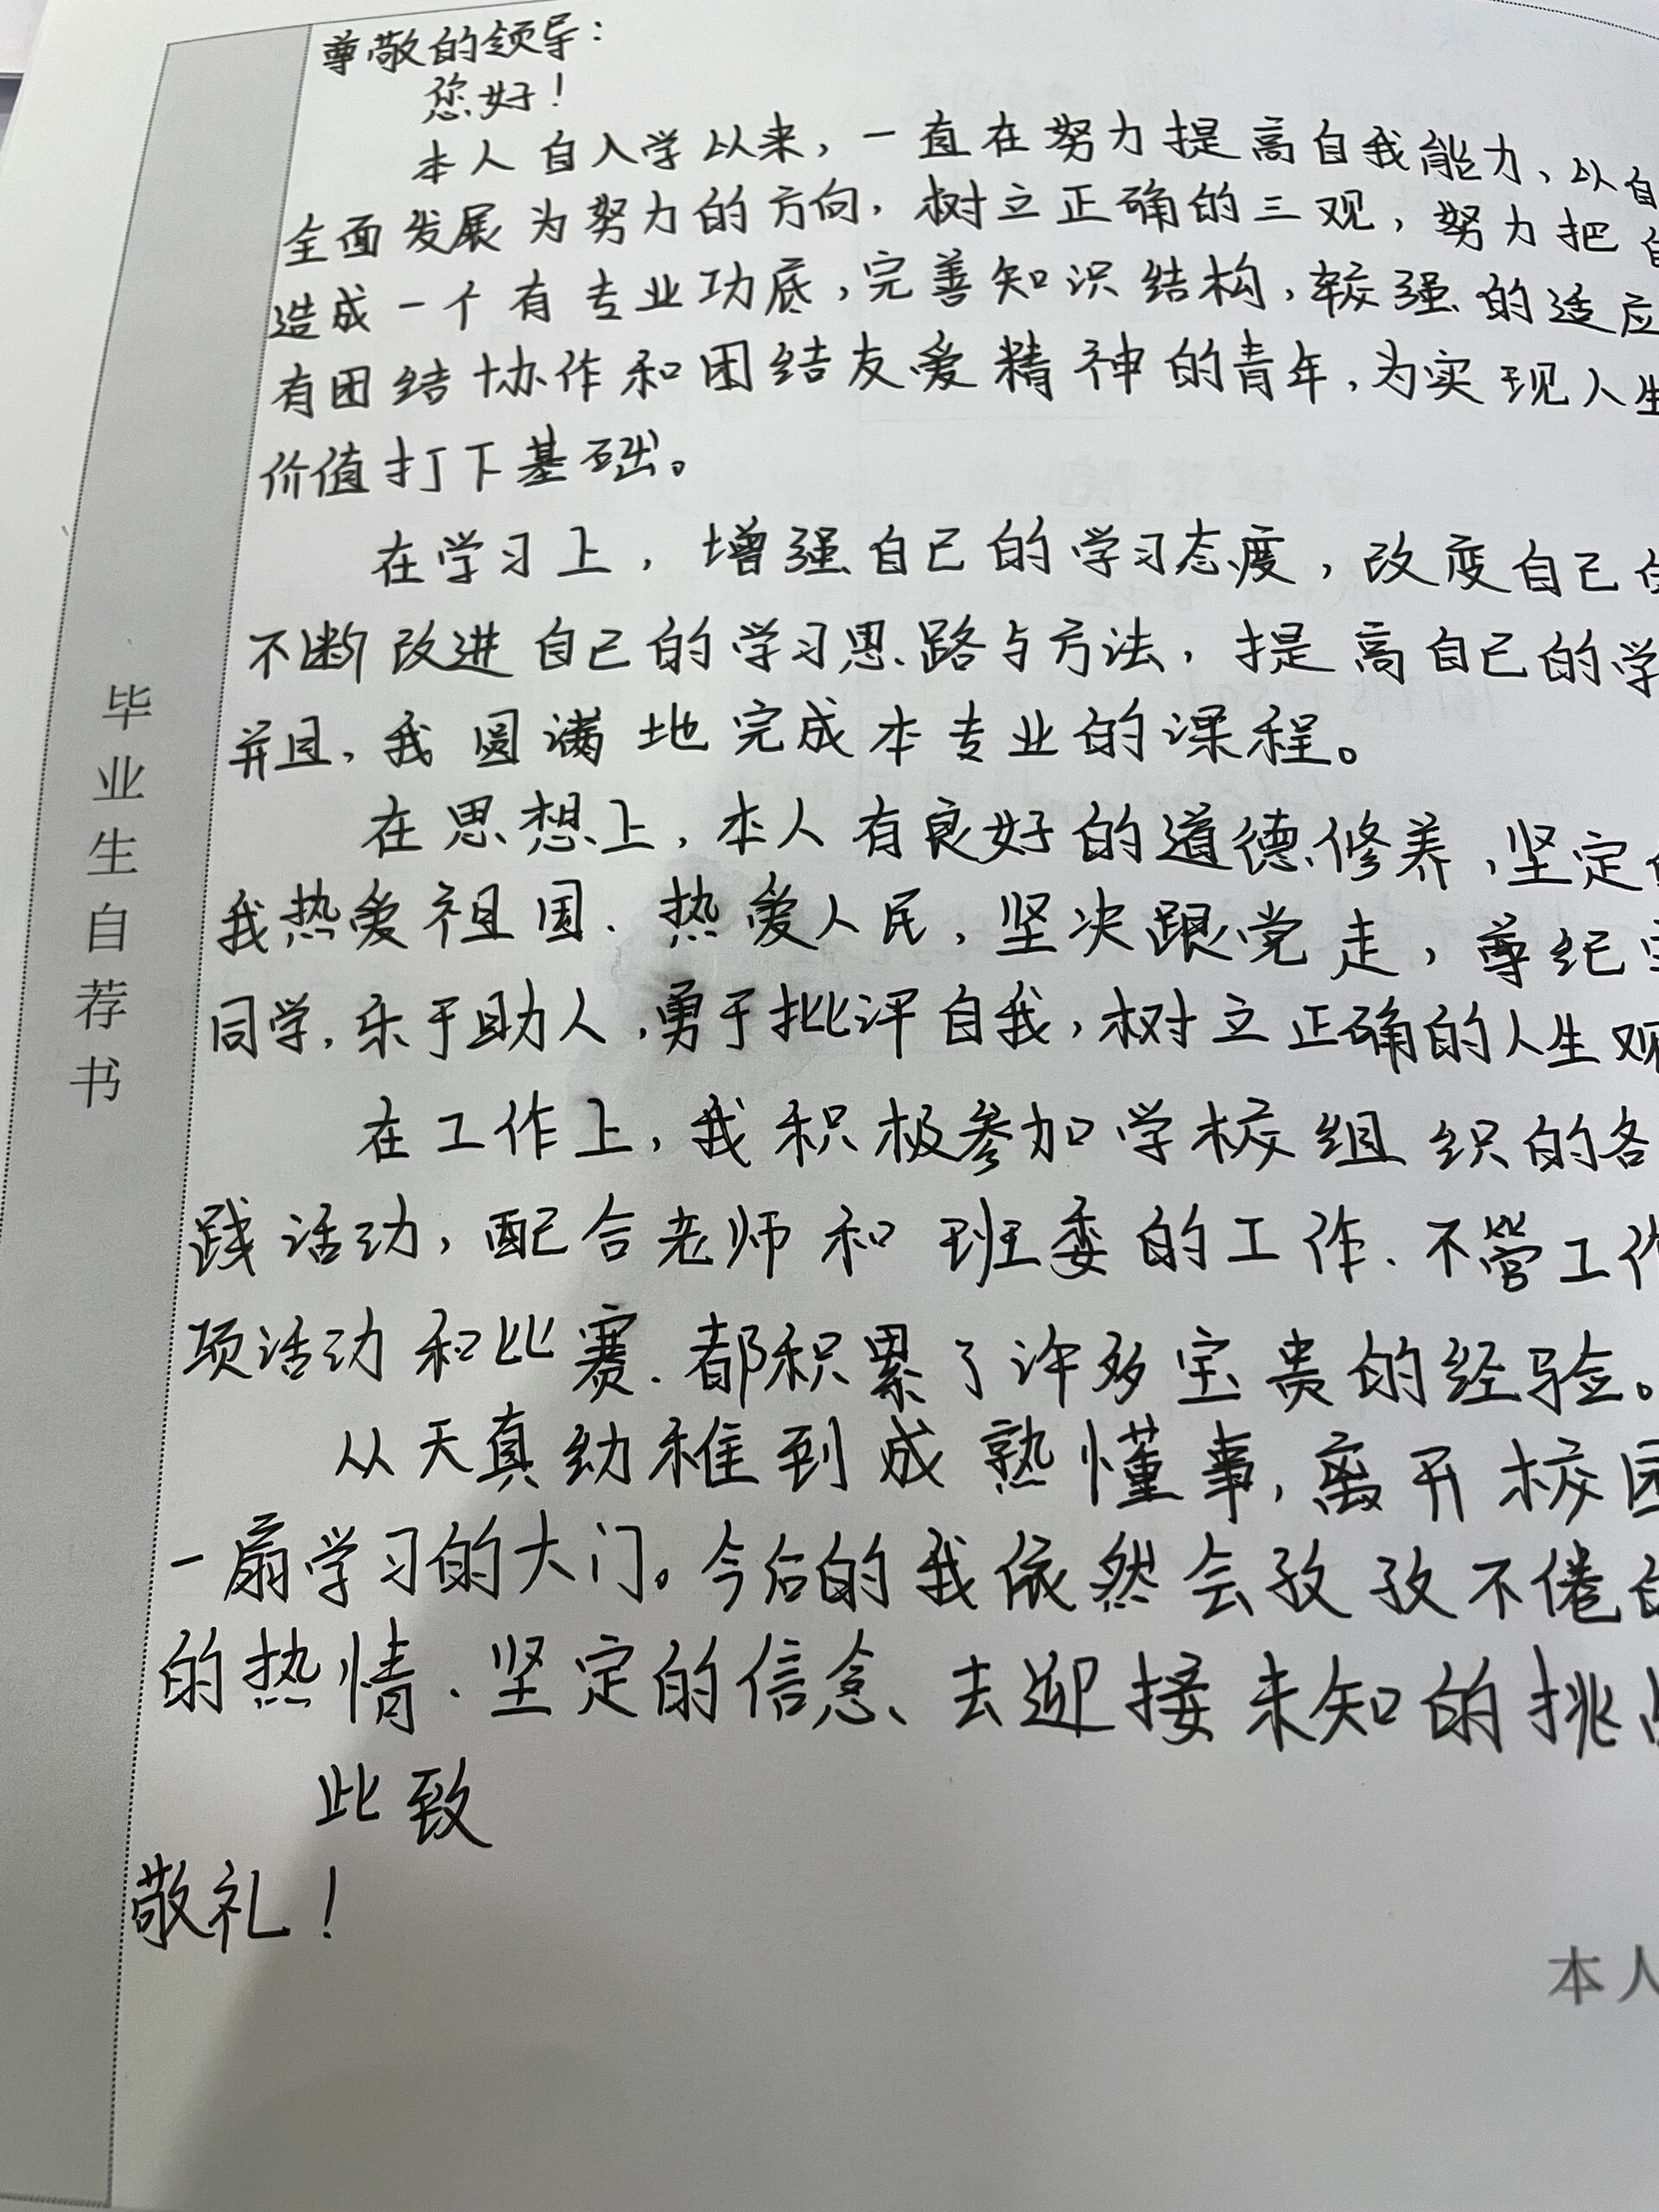 尊敬的领导:
您好!
本人自入学以来,一直在努力提高自我能力、以自
全面发展为努力的方向,树立正确的三观,努力把自
造成一个有专业功底,完善知识结构,较强的适应
有团结协作和团结友爱精神的青年,为实现人生
价值打下基础。
在学习上,增强自己的学习态度,改变自己的
不断改进自己的学习思路与方法,提高自己的学
并且,我圆满地完成本专业的课程。
在思想上,本人有良好的道德修养,坚定的
我热爱祖国、热爱人民,坚决跟党走,尊纪守
同学,乐于助人,勇于批评自我,树立正确的人生观
在工作上,我积极参加学校组织的各
践活动,配合老师和班委的工作、不管工作
项活动和比赛、都积累了许多宝贵的经验。
从天真幼稚到成熟懂事,离开校园
一扇学习的大门。今后的我依然会孜孜不倦的
的热情、坚定的信念、去迎接未知的挑战
此致
敬礼!
毕业生自荐书
本人